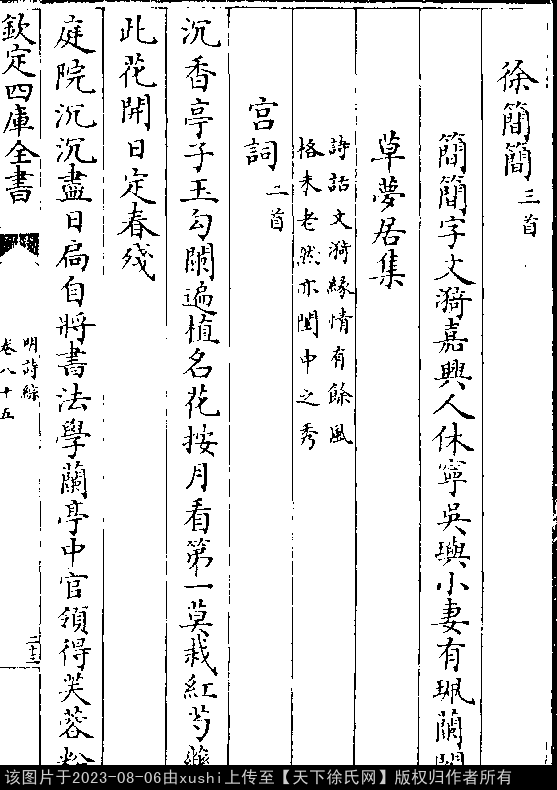 徐簡簡三首
簡簡字文漪嘉興人休寧吳璵小妻有珮蘭閣
草夢居集
詩話文漪緣情有餘風
格未老然亦閨中之秀
宫詞二首
沉香亭子玉勾闌遍植名花按月看第一莫栽紅芍藥
此花開日定春殘
庭院沉沉盡日扃自將書法學蘭亭中官領得芙蓉粉
欽定四庫全書
明詩綜
卷八十五
二十三
该图片于2023-08-06由xushi上传至【天下徐氏网】版权归作者所有